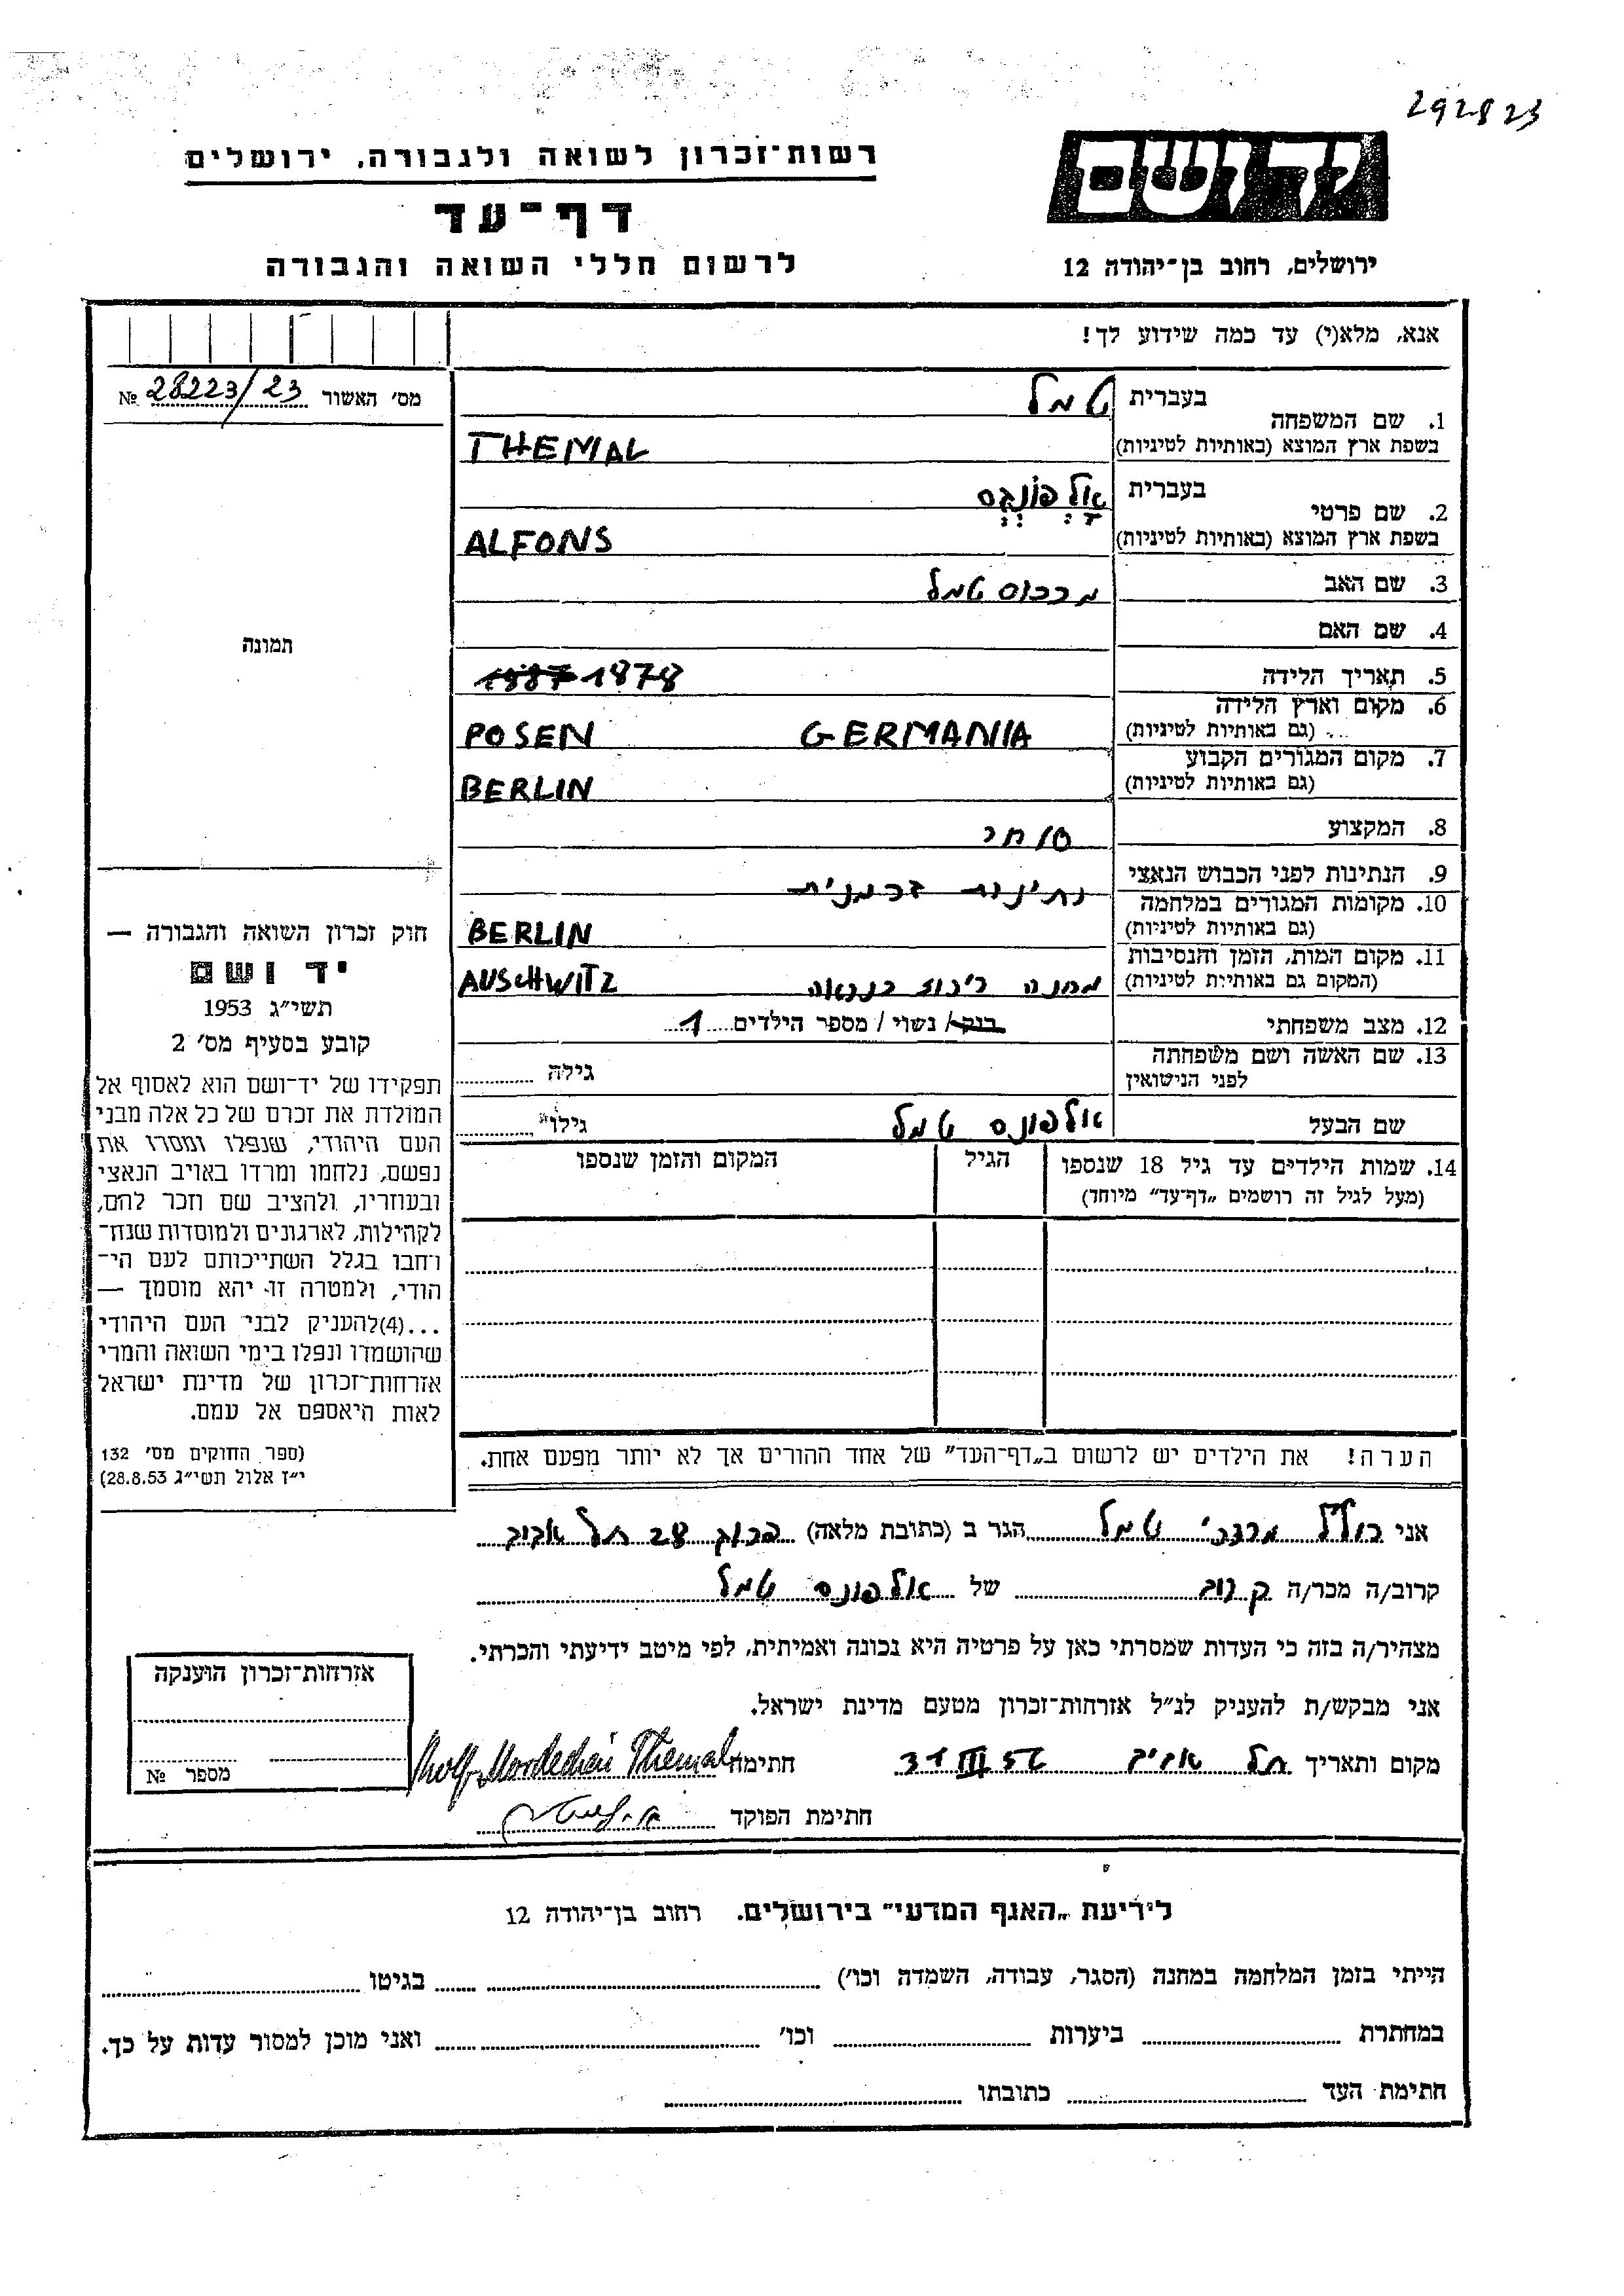 292823
רשות־זכרון לשואה ולגבורה, ירושלים
יד ושם
דף־עד
לרשום חללי השואה והגבורה
ירושלים, רחוב בן־יהודה 12
אנא, מלא(י) עד כמה שידוע לך!
מס׳ האשור 28223/23 №
1. שם המשפחה בעברית טמל
בשפת ארץ המוצא (באותיות לטיניות) THEMAL
2. שם פרטי בעברית אַלְפוֹנְס
בשפת ארץ המוצא (באותיות לטיניות) ALFONS
3. שם האב מרכוס טמל
4. שם האם
תמונה
5. תאריך הלידה 1887 1878
6. מקום וארץ הלידה
(גם באותיות לטיניות) POSEN GERMANIA
7. מקום המגורים הקבוע
(גם באותיות לטיניות) BERLIN
8. המקצוע סוחר
9. הנתינות לפני הכבוש הנאצי נתינות גרמנית
10. מקומות המגורים במלחמה
(גם באותיות לטיניות) BERLIN
11. מקום המות, הזמן והנסיבות
(המקום גם באותיות לטיניות) מחנה ריכוז כנראה AUSCHWITZ
12. מצב משפחתי רווק / נשוי / מספר הילדים 1
13. שם האשה ושם משפחתה
לפני הנישואין גילה
שם הבעל אלפונס טמל גילו
14. שמות הילדים עד גיל 18 שנספו הגיל המקום והזמן שנספו
(מעל לגיל זה רושמים „דף־עד״ מיוחד)
חוק זכרון השואה והגבורה —
יד ושם
תשי״ג 1953
קובע בסעיף מס׳ 2
תפקידו של יד־ושם הוא לאסוף אל
המולדת את זכרם של כל אלה מבני
העם היהודי, שנפלו ומסרו את
נפשם, נלחמו ומרדו באויב הנאצי
ובעוזריו, ולהציב שם וזכר להם,
לקהילות, לארגונים ולמוסדות שנח־
רבו בגלל השתייכותם לעם הי־
הודי, ולמטרה זו יהא מוסמך —
...(4) להעניק לבני העם היהודי
שהושמדו ונפלו בימי השואה והמרי
אזרחות־זכרון של מדינת ישראל
לאות היאספם אל עמם.
(ספר החוקים מס׳ 132
י״ז אלול תשי״ג 28.8.53)
הערה! את הילדים יש לרשום ב„דף־העד״ של אחד ההורים אך לא יותר מפעם אחת.
אני מרדכי טמל הגר ב (כתובת מלאה) תל אביב
קרוב/ה מכר/ה קרוב של אלפונס טמל
מצהיר/ה בזה כי העדות שמסרתי כאן על פרטיה היא נכונה ואמיתית, לפי מיטב ידיעתי והכרתי.
אני מבקש/ת להעניק לנ״ל אזרחות־זכרון מטעם מדינת ישראל.
מקום ותאריך תל אביב 31 III 56 חתימה Wolf Mordechai Themal
חתימת הפוקד
אזרחות־זכרון הוענקה
מספר №
לידיעת „האגף המדעי״ בירושלים. רחוב בן־יהודה 12
הייתי בזמן המלחמה במחנה (הסגר, עבודה, השמדה וכו׳) בגיטו
במחתרת ביערות וכו׳ ואני מוכן למסור עדות על כך.
חתימת העד כתובתו